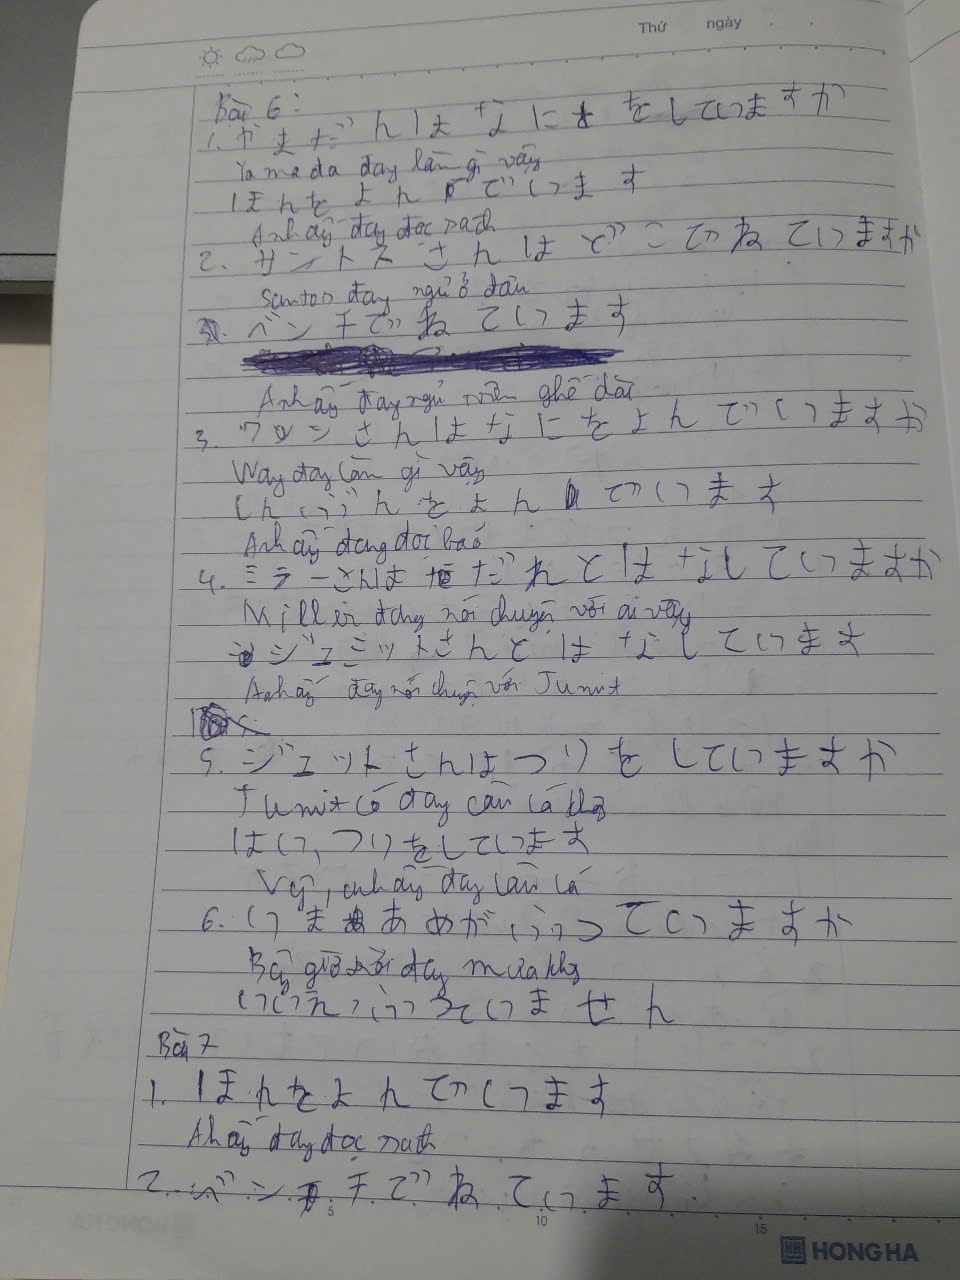 Thứ ngày
Bài 6:
1. やまださんはなにをしていますか
Yamada đay làm gì vậy
ほんをよんでいます
Anh ấy đay đọc sach
2. サントスさんはどこでねていますか
Santos đay ngủ ở đâu
ベンチでねています
Anh ấy đay ngủ trên ghế dài
3. ワンさんはなにをよんでいますか
Way đay làm gì vậy
しんぶんをよんでいます
Anh ấy đang đọc baó
4. ミラーさんはだれとはなしていますか
Miller đang nói chuyện với ai vậy
シュミットさんとはなしています
Anh ấy đay nói chuyện với Jumit
5. ジュットさんはつりをしていますか
Jumit có đay câu cá khg
はい、つりをしています
Vậy, anh ấy đay câu cá
6. いまあめがふっていますか
Bây giờ trời đay mưa khg
いいえ、ふっていません
Bài 7
1. ほんをよんでいます
Anh ấy đay đọc sach
2. ベンチでねています.
5 10 15
HONG HA